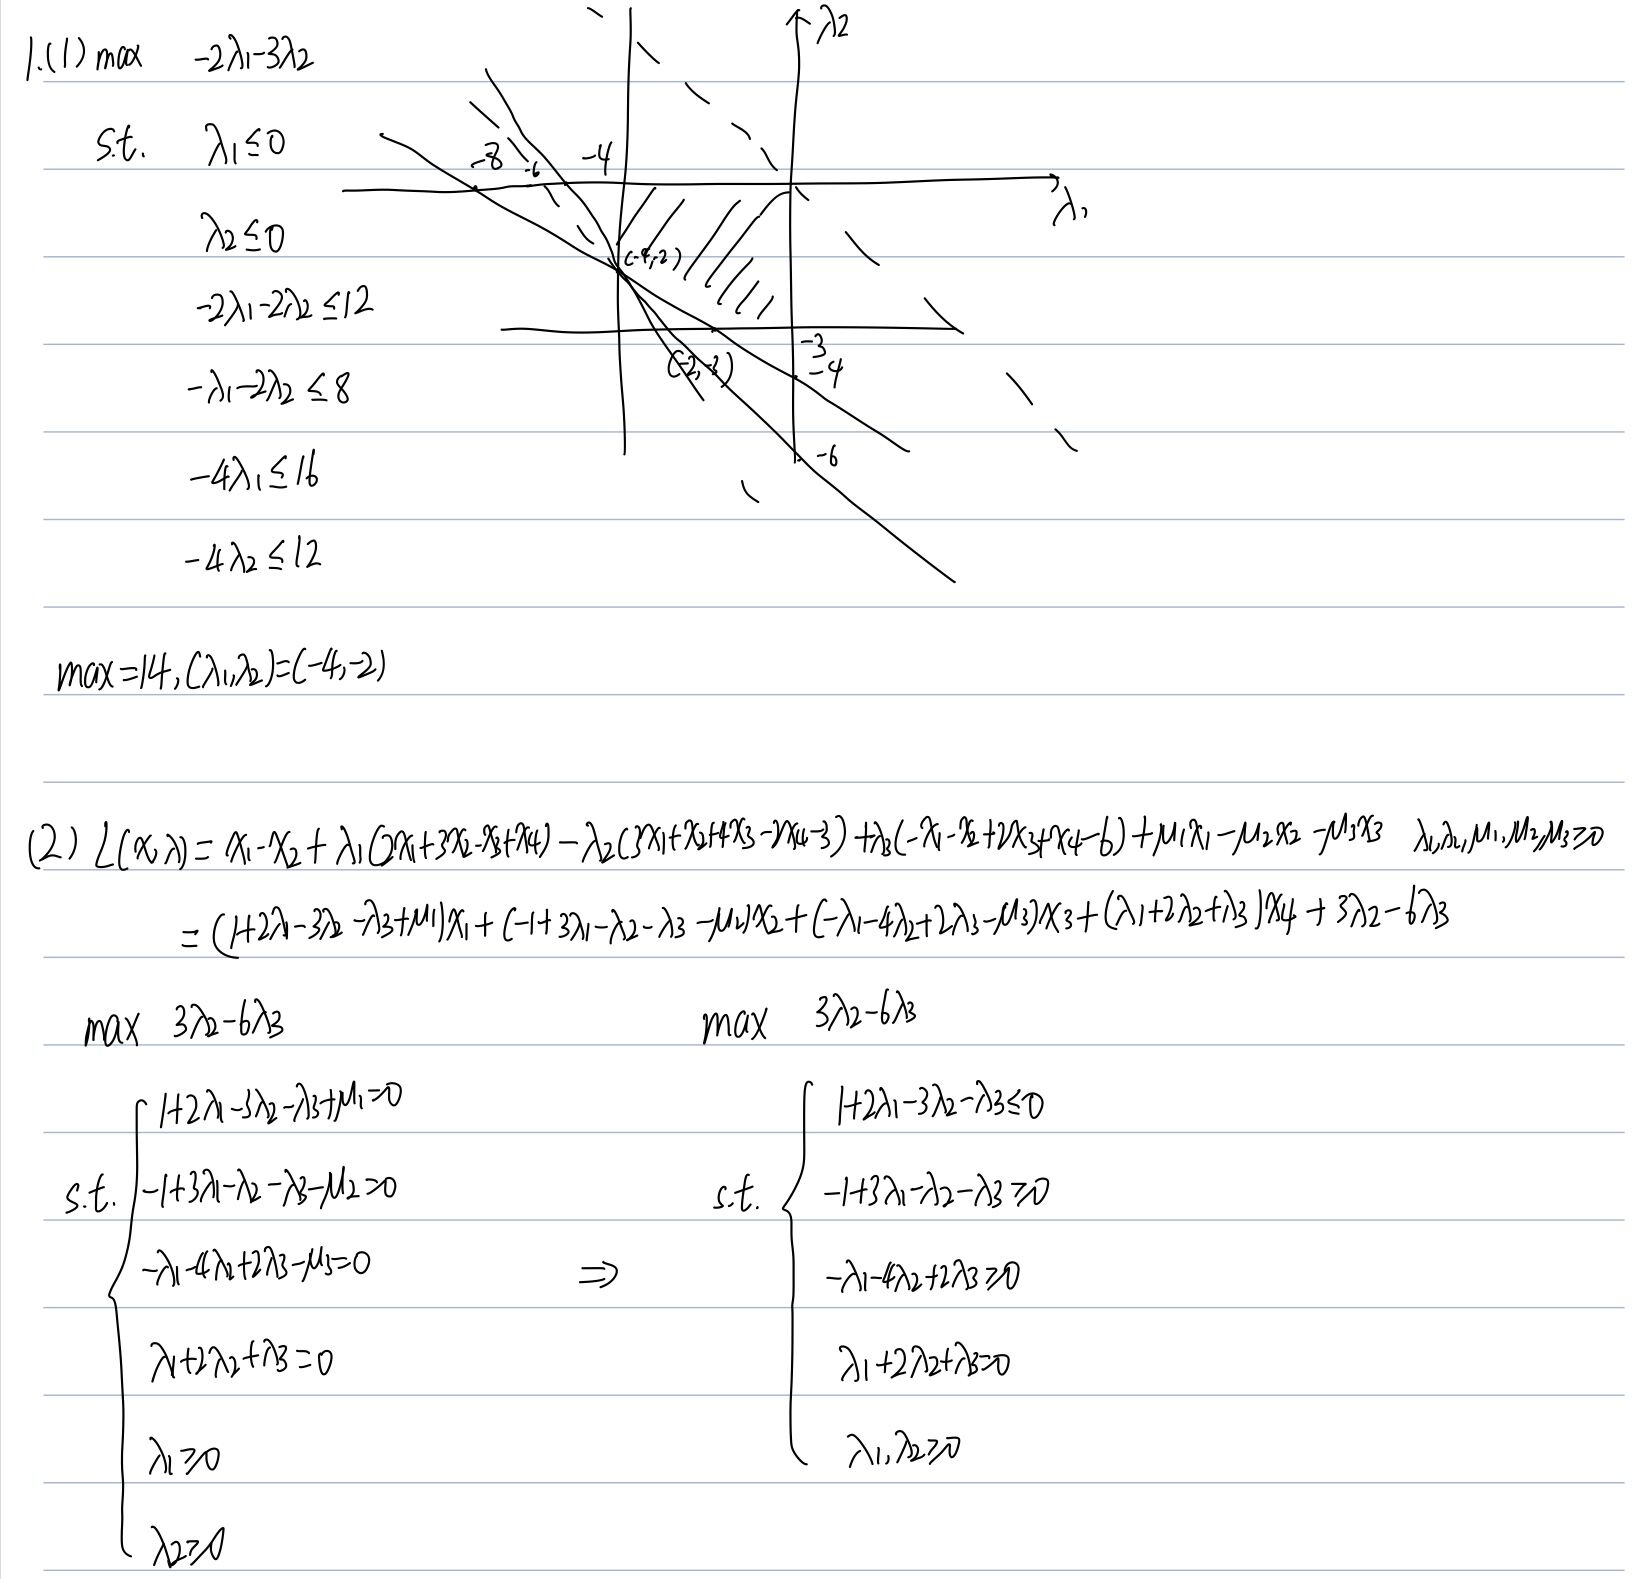 1.(1) max -2λ1-3λ2
s.t. λ1≤0
λ2≤0
-2λ1-2λ2≤12
-λ1-2λ2≤8
-4λ1≤16
-4λ2≤12
λ2
-8 -6 -4
λ1
(-4,-2)
(-2,-3)
-3
-4
-6
max=14, (λ1,λ2)=(-4,-2)
(2) L(x,λ)= x1-x2+λ1(2x1+3x2-x3+x4)-λ2(3x1+x2+4x3-2x4-3)+λ3(-x1-x2+2x3+x4-6)+μ1x1-μ2x2-μ3x3 λ1,λ2,μ1,μ2,μ3≥0
=(1+2λ1-3λ2-λ3+μ1)x1+(-1+3λ1-λ2-λ3-μ2)x2+(-λ1-4λ2+2λ3-μ3)x3+(λ1+2λ2+λ3)x4+3λ2-6λ3
max 3λ2-6λ3
s.t. 1+2λ1-3λ2-λ3+μ1=0
-1+3λ1-λ2-λ3-μ2=0
-λ1-4λ2+2λ3-μ3=0
λ1+2λ2+λ3=0
λ1≥0
λ2≥0
⇒
max 3λ2-6λ3
s.t. 1+2λ1-3λ2-λ3≤0
-1+3λ1-λ2-λ3≥0
-λ1-4λ2+2λ3≥0
λ1+2λ2+λ3=0
λ1,λ2≥0